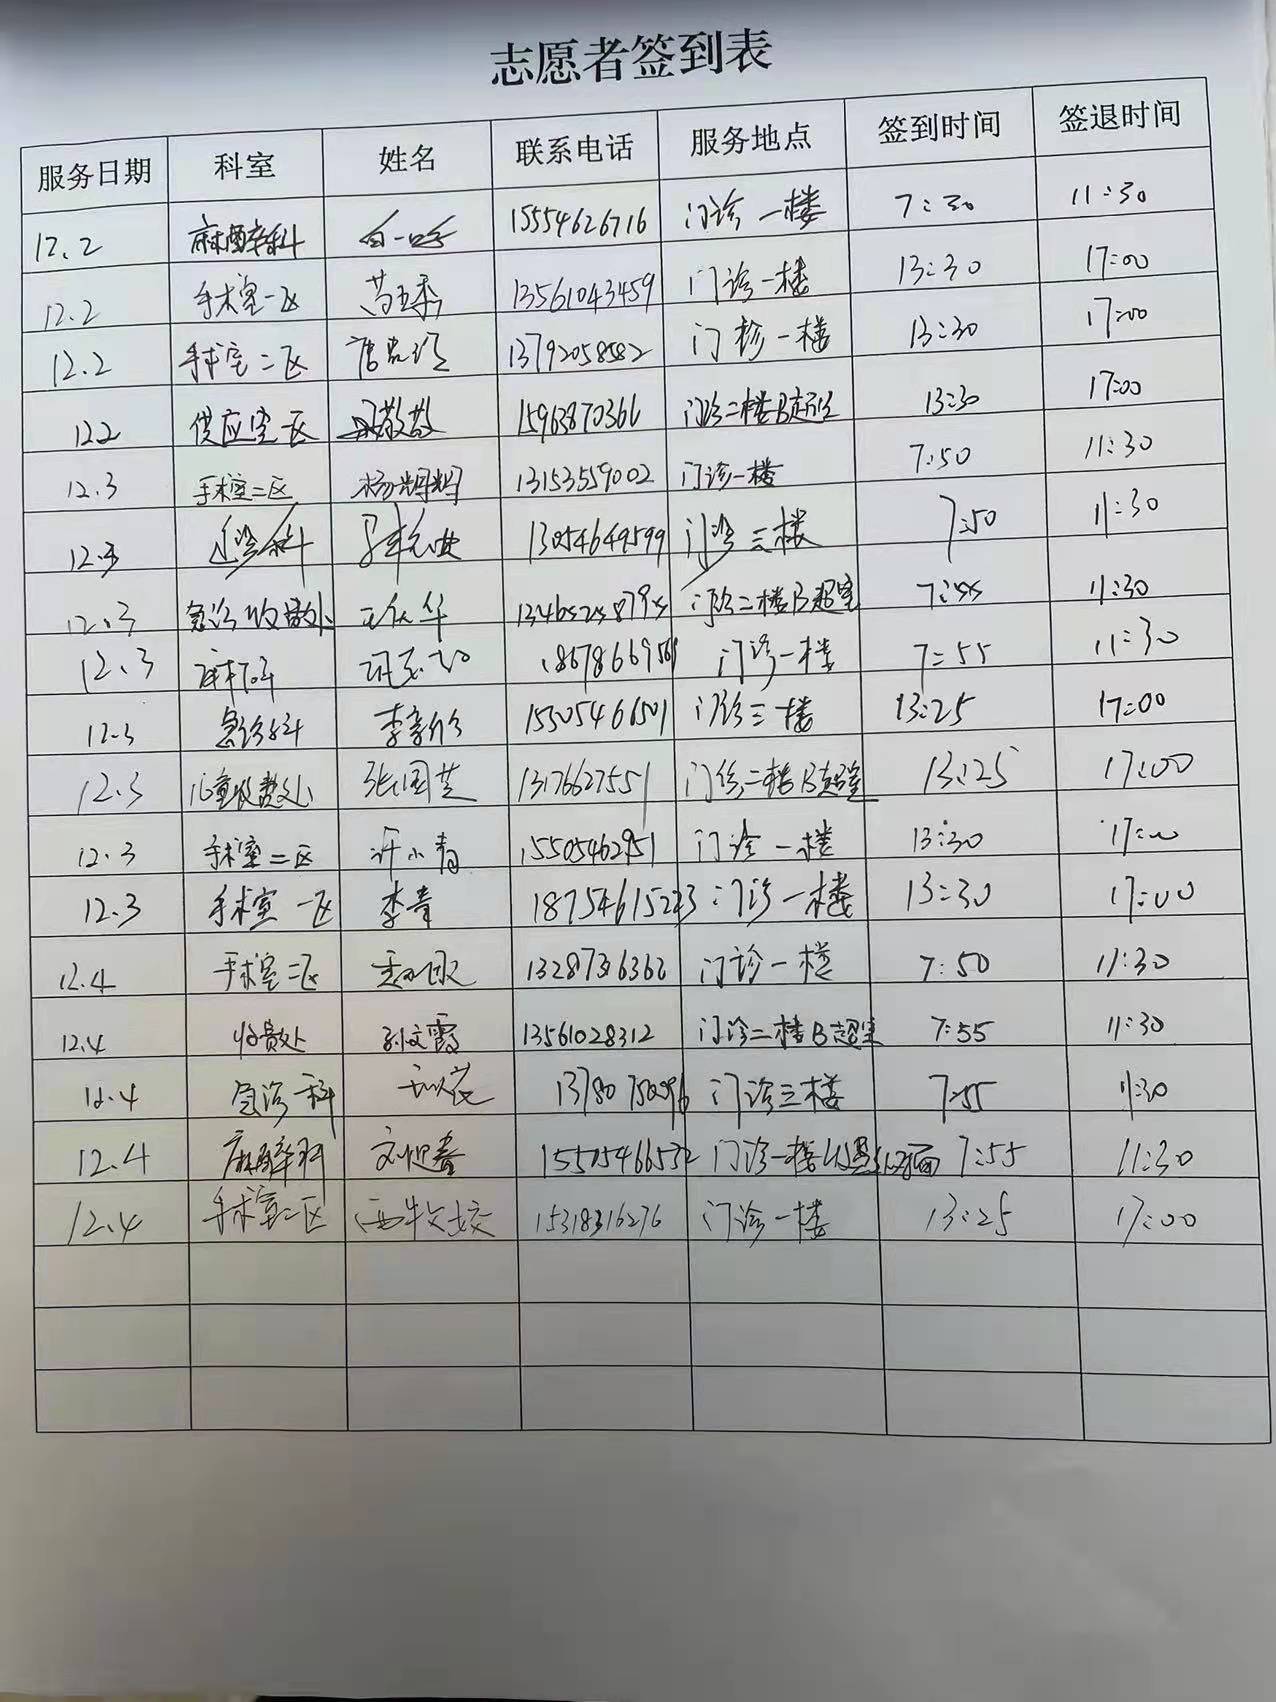 志愿者签到表
服务日期 科室 姓名 联系电话 服务地点 签到时间 签退时间
12.2 麻醉科 15554626716 门诊一楼 7:30 11:30
12.2 手术室一区 13561043459 门诊一楼 13:30 17:00
12.2 手术室二区 13792058582 门诊一楼 13:30 17:00
12.2 供应室一区 15963870366 门诊二楼B超室 13:30 17:00
12.3 手术室二区 杨娟娟 13153559002 门诊一楼 7:50 11:30
12.3 13054649599 门诊三楼 7:50 11:30
12.3 急诊收费处 门诊二楼B超室 7:55 11:30
12.3 门诊一楼 7:55 11:30
12.3 急诊科 15505466501 门诊三楼 13:25 17:00
12.3 儿童收费处 张国芝 13176627551 门诊二楼B超室 13:25 17:00
12.3 手术室二区 许小青 15505462951 门诊一楼 13:30 17:00
12.3 手术室一区 李青 门诊一楼 13:30 17:00
12.4 手术室二区 门诊一楼 7:50 11:30
12.4 收费处 孙文霞 13561028312 门诊二楼B超室 7:55 11:30
12.4 急诊科 门诊三楼 7:55 11:30
12.4 麻醉科 15505466532 门诊一楼 7:55 11:30
12.4 手术室二区 15318316276 门诊一楼 13:25 17:00